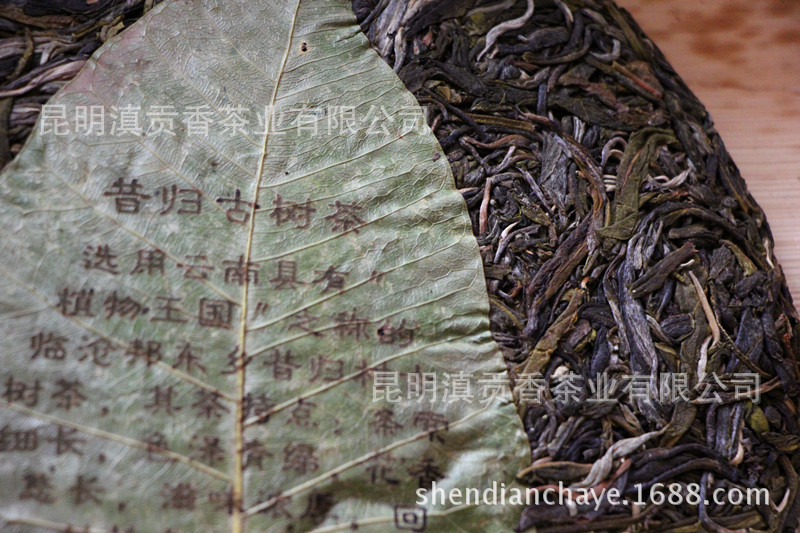 昆明滇贡香茶业有限公司
昔归古树茶
选用云南具有"
植物王国"之称的
临沧邦东乡昔归
树茶，其茶特点，茶
细长，绿
悠长，
回
昆明滇贡香茶业有限公司
shendianchaye.1688.com